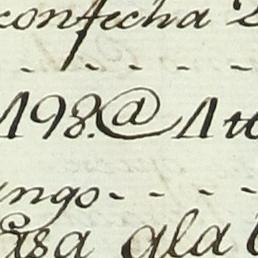 confecha 2
- - - - -
198.@ 1 tt
ango - - - -
asa gla